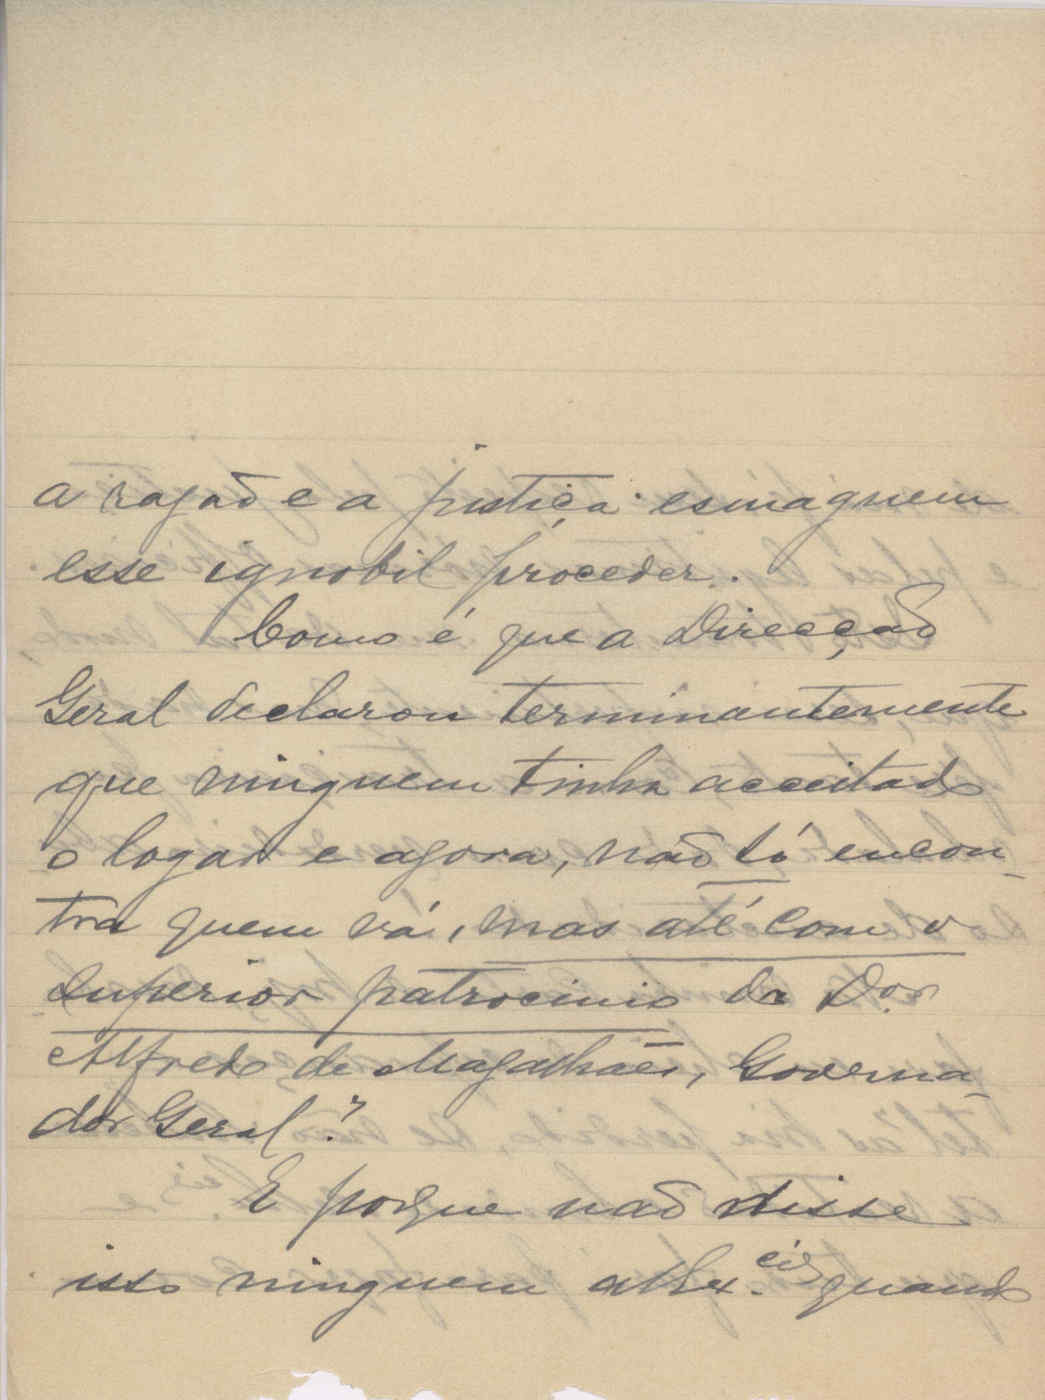 a razão e a justiça esmaguem
esse ignobil proceder.
Como é que a Direcção
Geral declarou terminantemente
que ninguem tinha acceitado
o logar e agora, não só encon-
tra quem vá, mas até com o
superior patrocinio do Dor
Alfredo de Magalhães, Governa-
dor Geral?
E porque não disse
isso ninguem a V. Ex.cia quando